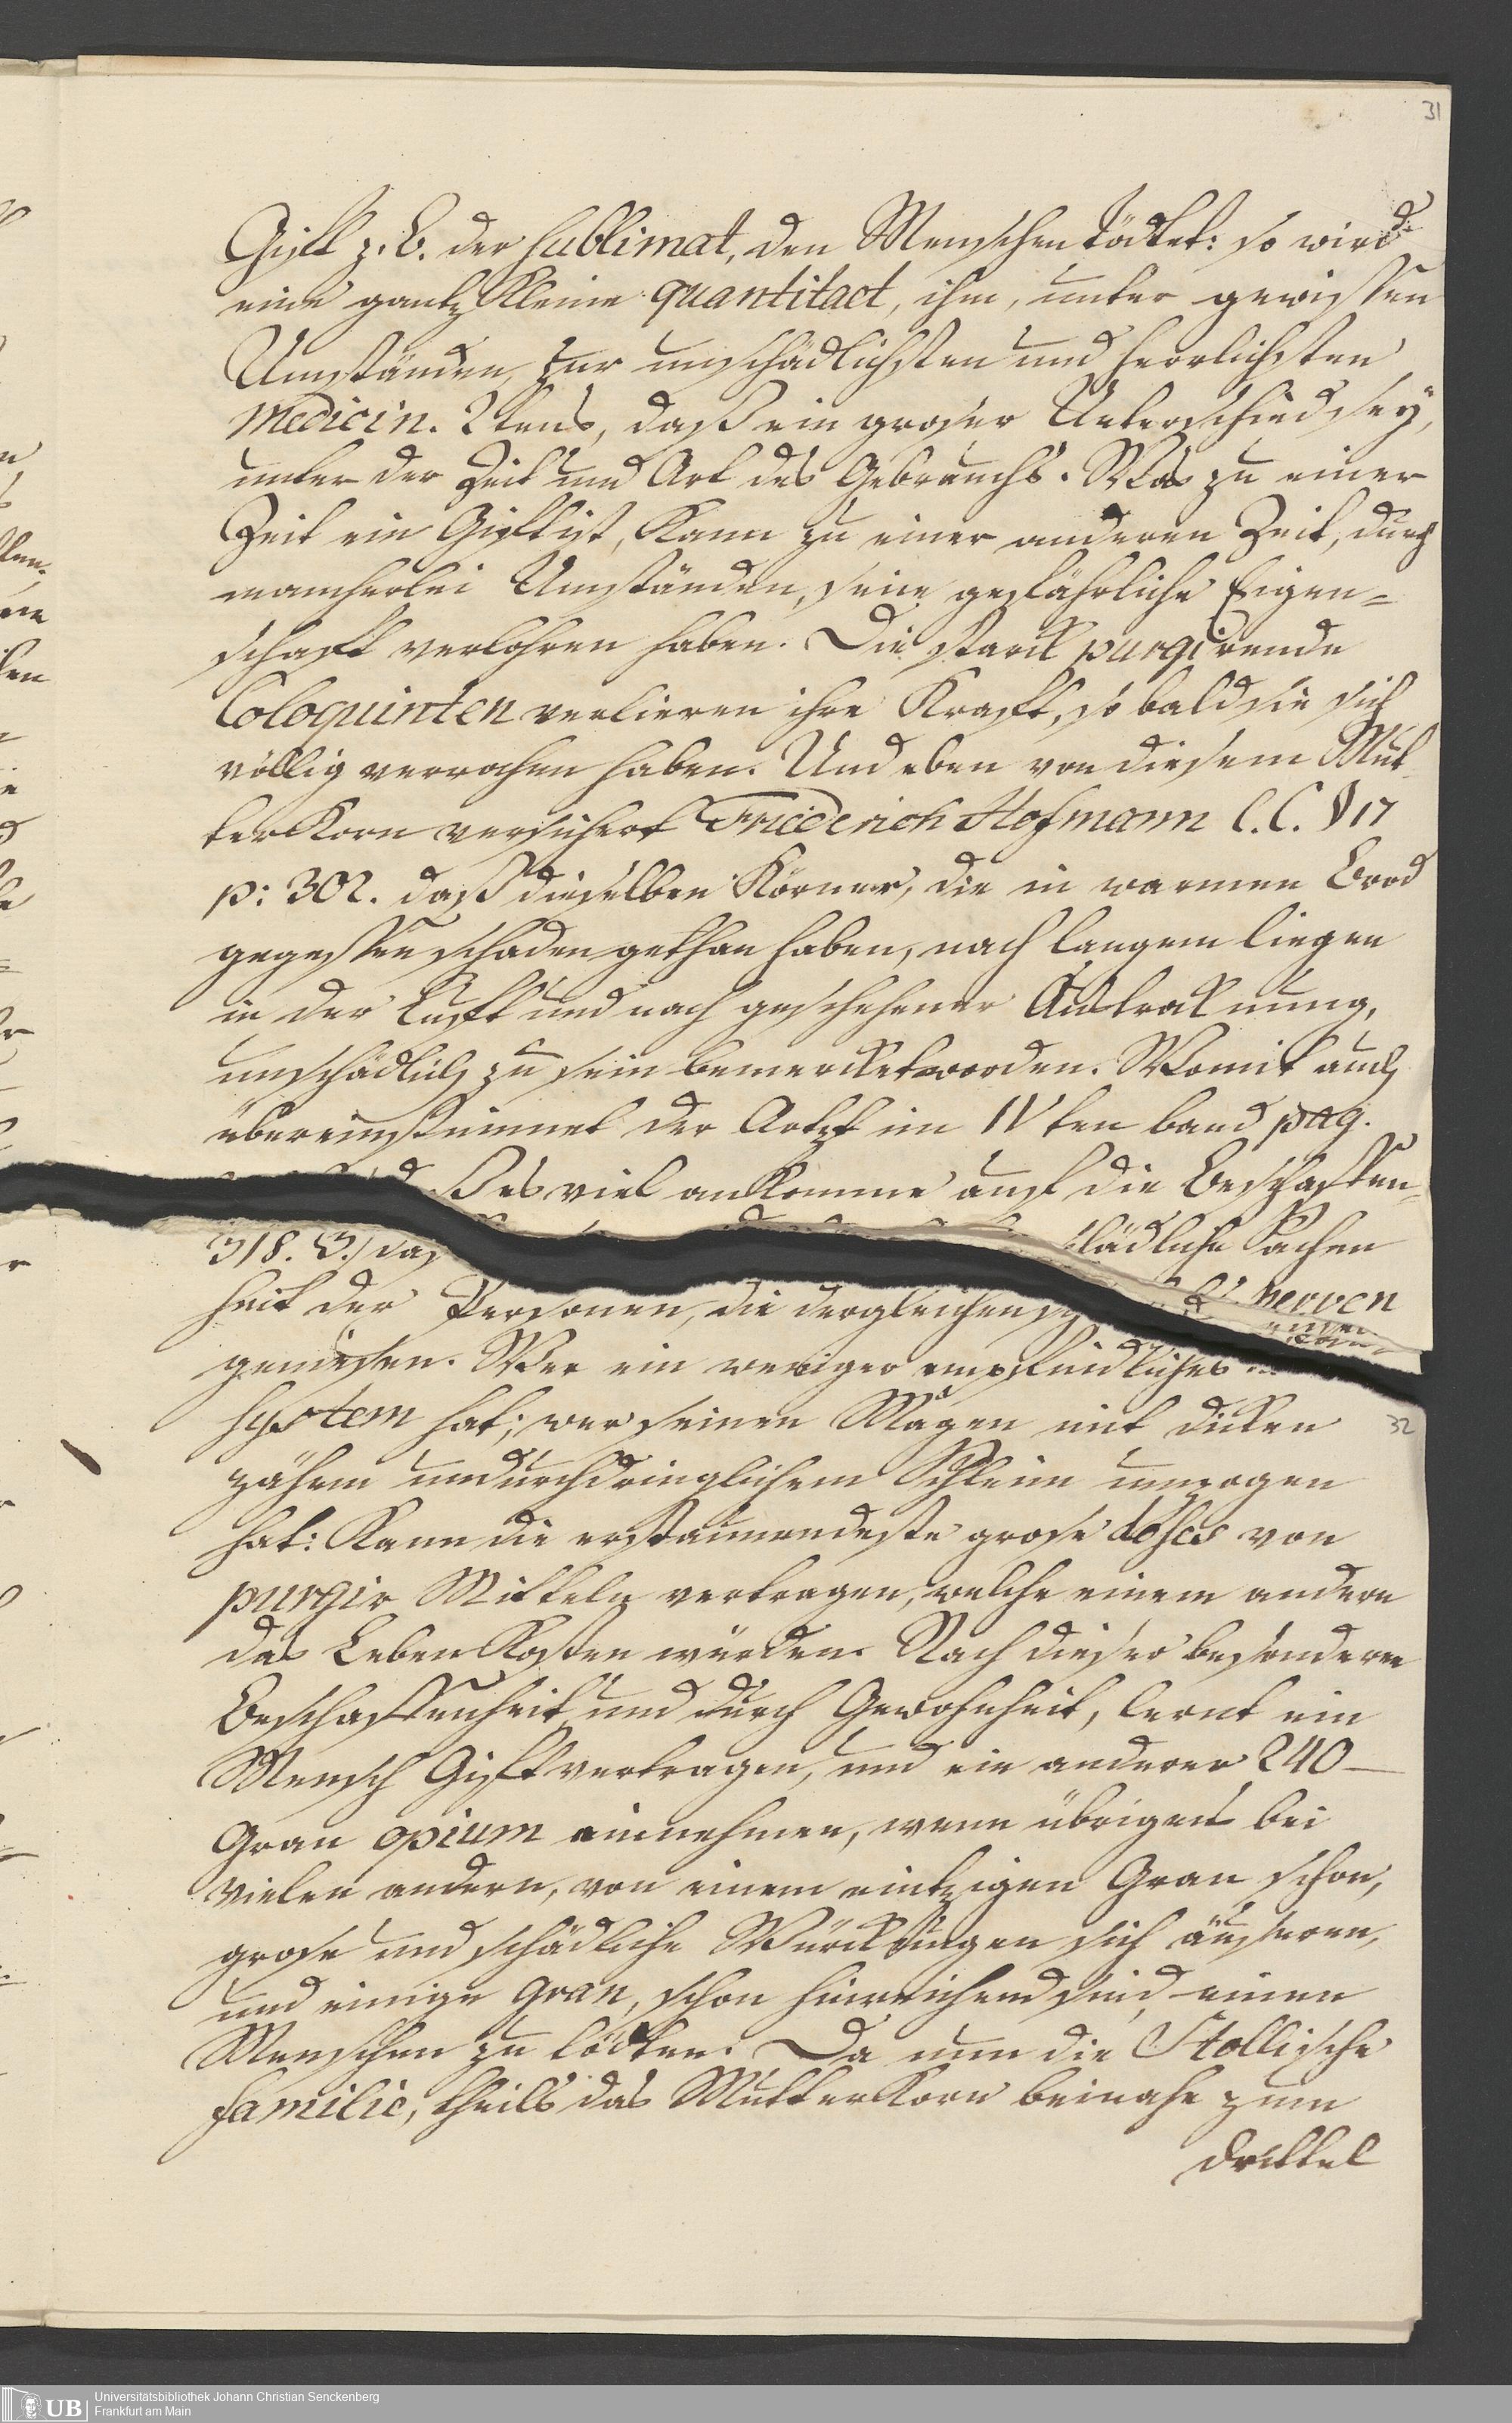 31
Gift z. B. der Sublimat, den Menschen tödtet: so wird
eine gantz kleine quantitaet, ihm, unter gewissen
Umständen, zur unschädlichsten und herrlichsten
Medicin. 2tens, daß ein groser Unterschied sey,
unter der Zeit und Art des Gebrauchs. Was zu einer
Zeit ein Gift ist, kann zu einer anderen Zeit, durch
mancherlei Umständen, seine gefährliche Eigen=
schaft verlohren haben. Die starck purgirende
Coloquinten verlieren ihre Kraft, so bald sie sich
völlig verrochen haben. Und eben von diesem Mut
terkorn versichert Friederich Hofmann l. c. § 17
p: 302. daß dieselben Körner, die in warmen Brod
gegessen schaden gethan haben, nach langem liegen
in der Luft und nach geschehener Austroknung,
unschädlich zu sein bemercket worden. Womit auch
übereinstimmet der Artzt im IVten band pag.
318. 3.) daß es viel ankomme auf die Beschaffen
heit der Personen, die dergleichen schädliche Sachen
geniesen. Wer ein weniger empfindliches Nerven
System hat; wer seinen Magen mit dicken
zähem undurchdringlichem Schleim umzogen
hat: kann die erstaunendeste grose doses von
purgir Mitteln vertragen, welche einem andern
das Leben kosten würden. Nach dieser besonderen
Beschaffenheit und durch Gewohnheit, lernt ein
Mensch Gift vertragen, und ein anderer 240 —
Gran opium einnehmen, wenn übrigens bei
vielen andern, von einem eintzigen Gran schon,
grose und schädliche Würckungen sich äusseren,
und einige Gran, schon hinreichend sind einen
Menschen zu tödten. Da nun die Stollische
familie, theils das Mutterkorn beinahe zum
drittel
32
UB
Universitätsbibliothek Johann Christian Senckenberg
Frankfurt am Main